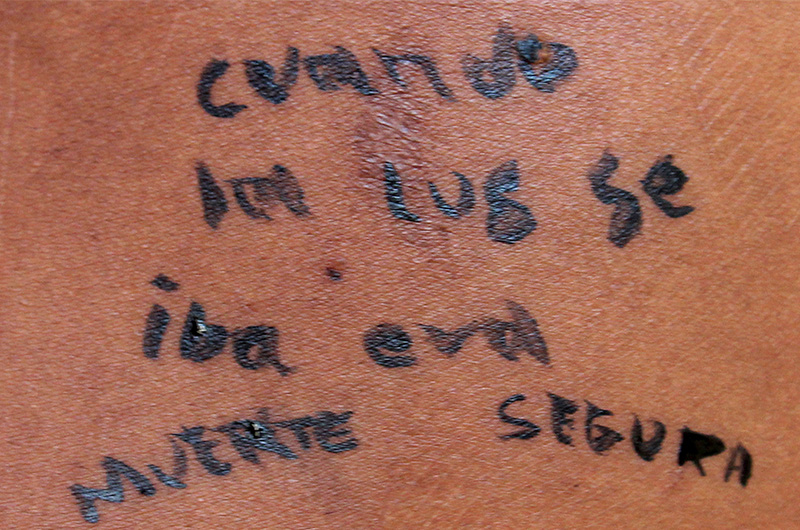 cuando
la lus se
iba era
MUERTE SEGURA